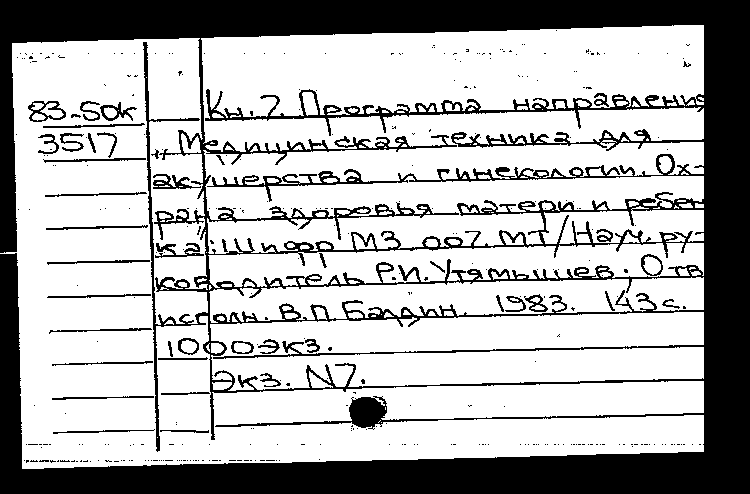 83-50к Кн. 7. Программа направления
3517 „Медицинская техника для
акушерства и гинекологии. Ох-
рана здоровья матери и ребен-
ка": Шифр МЗ 007. МТ/Науч. ру-
ководитель Р.И. Утямышев; Отв
исполн. В.П. Балдин. 1983. 143 с.
1000экз.
Экз. N7.